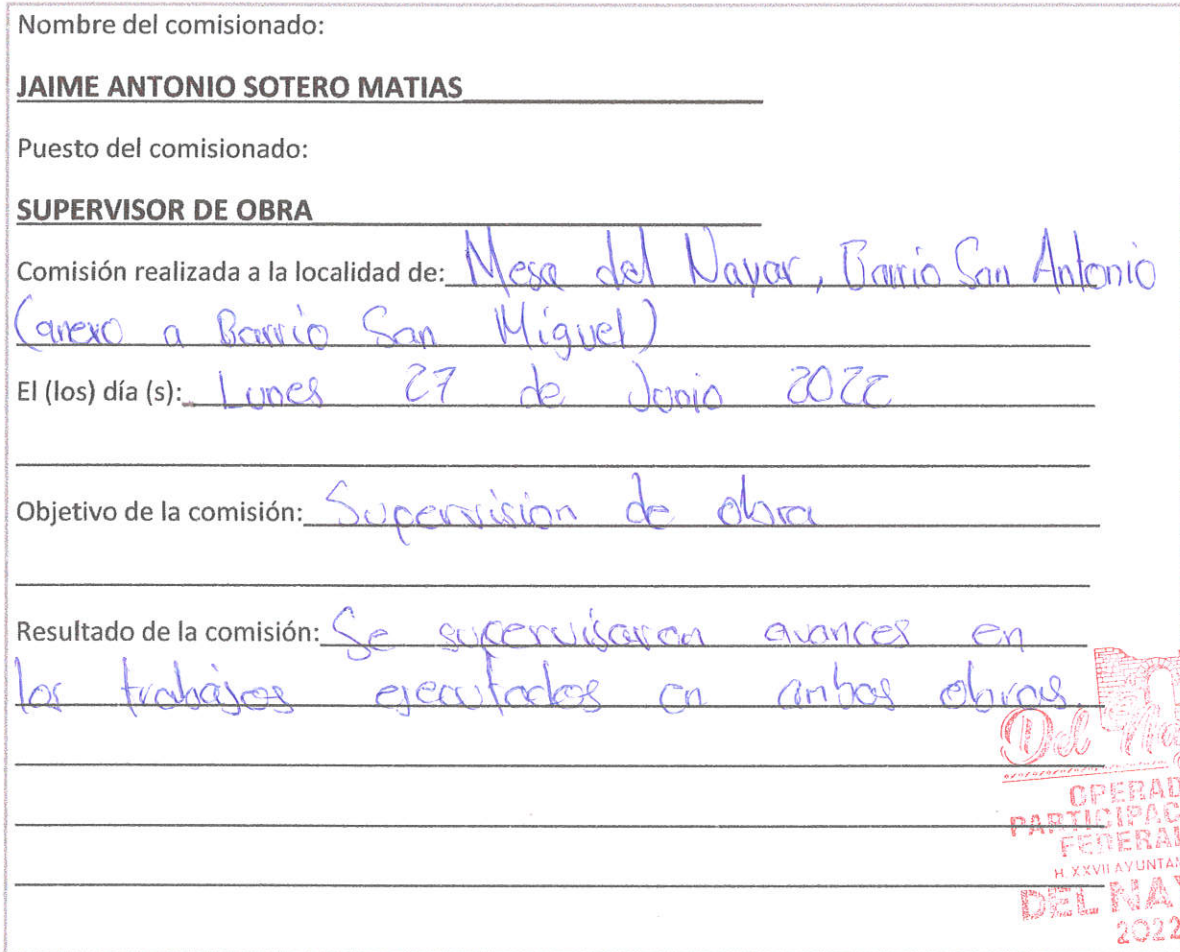 Nombre del comisionado:
JAIME ANTONIO SOTERO MATIAS
Puesto del comisionado:
SUPERVISOR DE OBRA
Comisión realizada a la localidad de: Mesa del Nayar, Barrio San Antonio
(anexo a Barrio San Miguel)
El (los) día (s): Lunes 27 de Junio 2022
Objetivo de la comisión: Supervision de obra
Resultado de la comisión: Se supervisaron avances en
los trabajos ejecutados en ambas obras.
Del Na
OPERAD
PARTICIPAC
FEDERAL
H. XXVII AYUNTAM
DEL NAY
2022